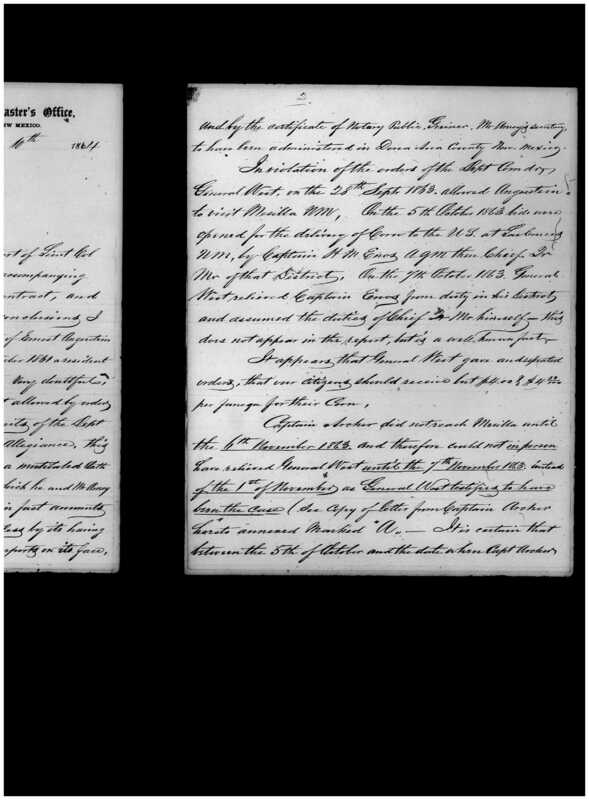 aster's Office,
EW MEXICO.
10th 1864
ort of Lieut Col
ccompanying
ontract, and
conclusions I
of Ernest Augustin
ber 1861 a resident
very doubtful,
t allowed by orders
of the Dept
Allegiance, this
a mutilated Oath
which he and Mr
in fact amounts
by its having
on its face,
2.
and by the certificate of Notary Public, Greiner, Mr secretary
to have been administered in Dona Ana County New Mexico
In violation of the orders of the Dept Comdr,
General West, on the 28th Septr 1863, allowed Augustein
to visit Mesilla NM, On the 5th October 1863 bids were
opened for the delivery of Corn to the U.S. at Las Cruces
NM, by Captain H M Enos AQM then Chief Qr
Mr of that District, On the 7th October 1863 General
West relieved Captain Enos from duty in his District
and assumed the duties of Chief Qr Mr himself — this
does not appear in the report, but is a well known fact.
It appears that General West gave and repeated
orders, that our citizens should receive but $4.00 &
per fanega for their Corn,
Captain Archer did not reach Mesilla until
the 6th November 1863 and therefore could not in person
have relieved General West until the 7th November 1863 instead
of the 1st of November as General West testifies to have
been the case (See Copy of letter from Captain Archer
hereto annexed Marked "A". — It is certain that
between the 5th of October and the date when Capt Archer